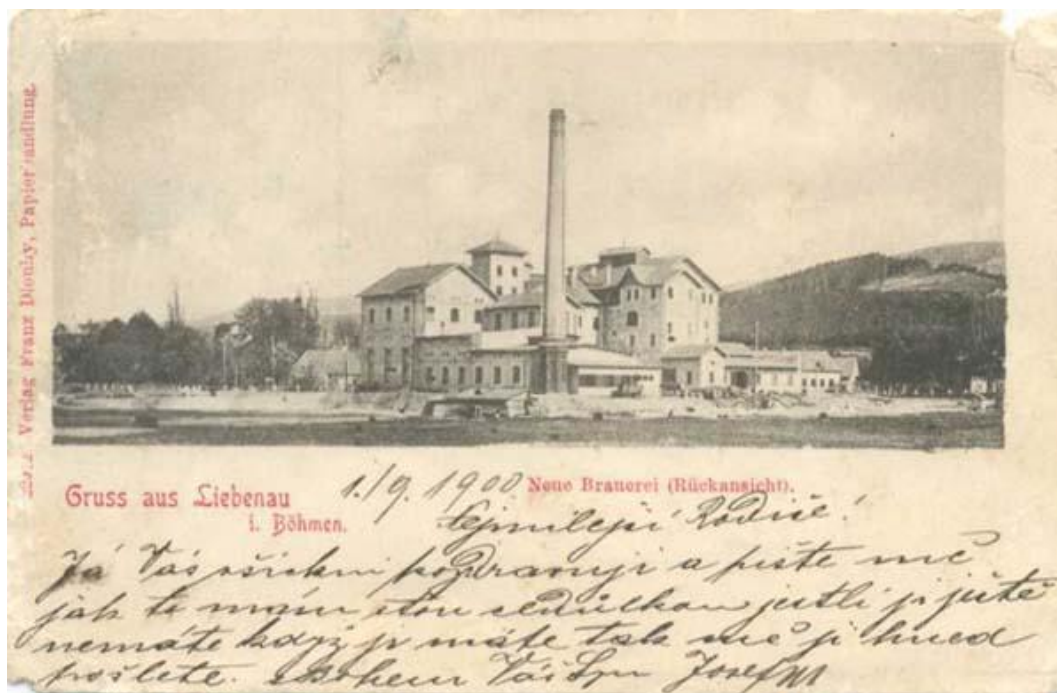 Verlag Franz Dlouhy, Papierhandlung.
Gruss aus Liebenau
i. Böhmen.
1./9. 1900
Neue Brauerei (Rückansicht).
Rodiče!
Já Vás pozdravuji a pište mě
jak to mám stou cedulkou jestli ji ještě
nemáte když ji máte tak mě ji hned
pošlete. Sbohem Váš Syn Josef